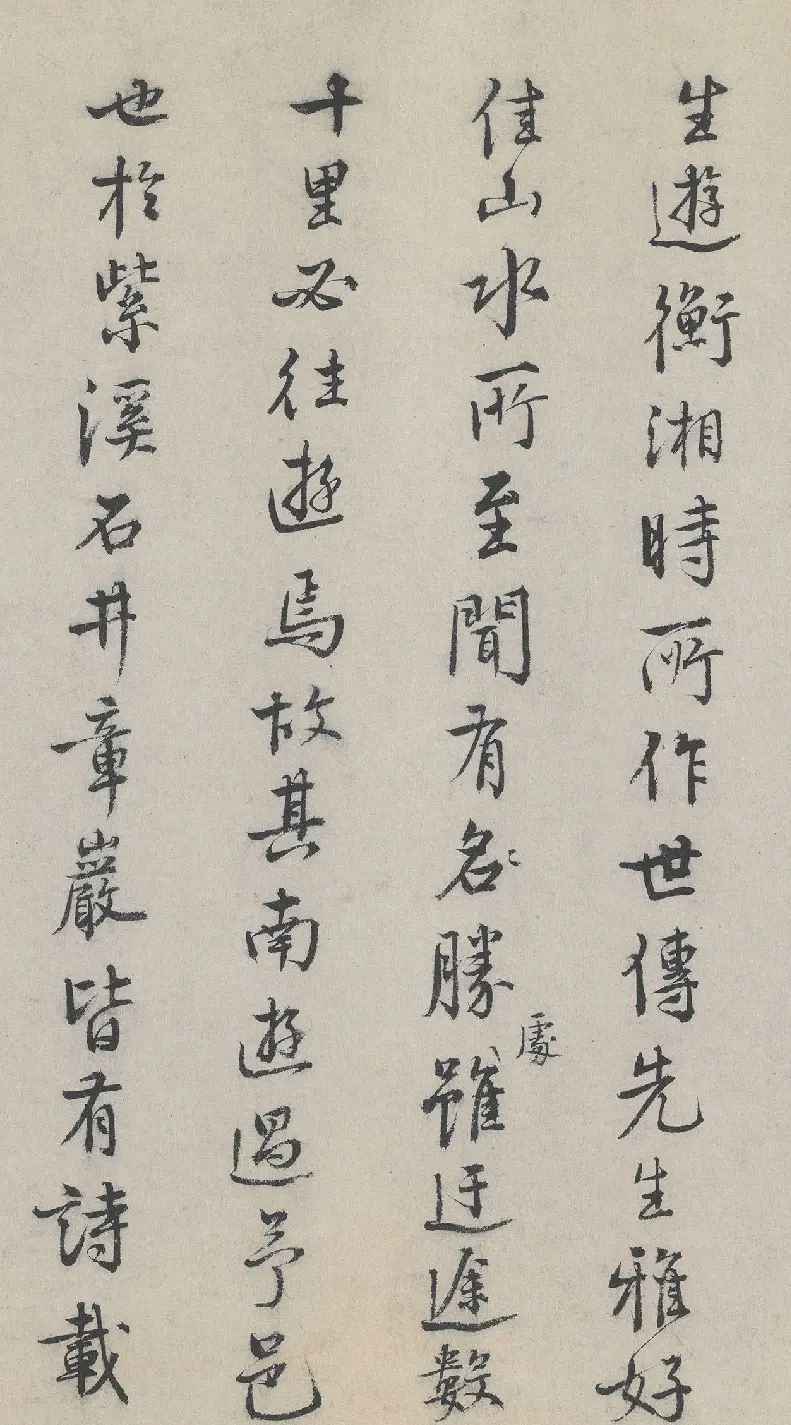 生遊衡湘時所作世傳先生雅好
佳山水所至聞有名勝處雖迂途數
十里必往遊焉故其南遊過予邑
也於紫溪石井章巖皆有詩載